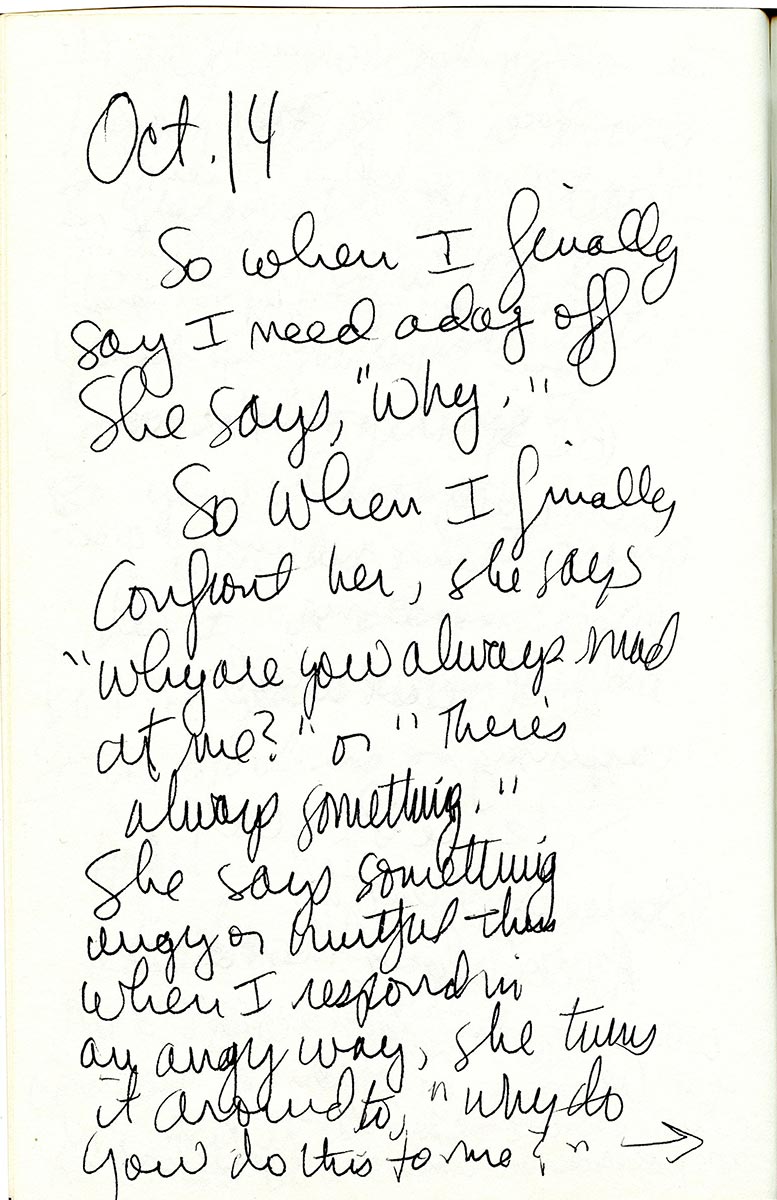 Oct. 14
So when I finally
say I need a day off
She says, "Why."
So when I finally
Confront her, she says
"Why are you always mad
at me?" or "There's
always something."
She says something
angy or hurtful then
when I respond in
an angy way, she turns
it around to, "why do
you do this to me?" →